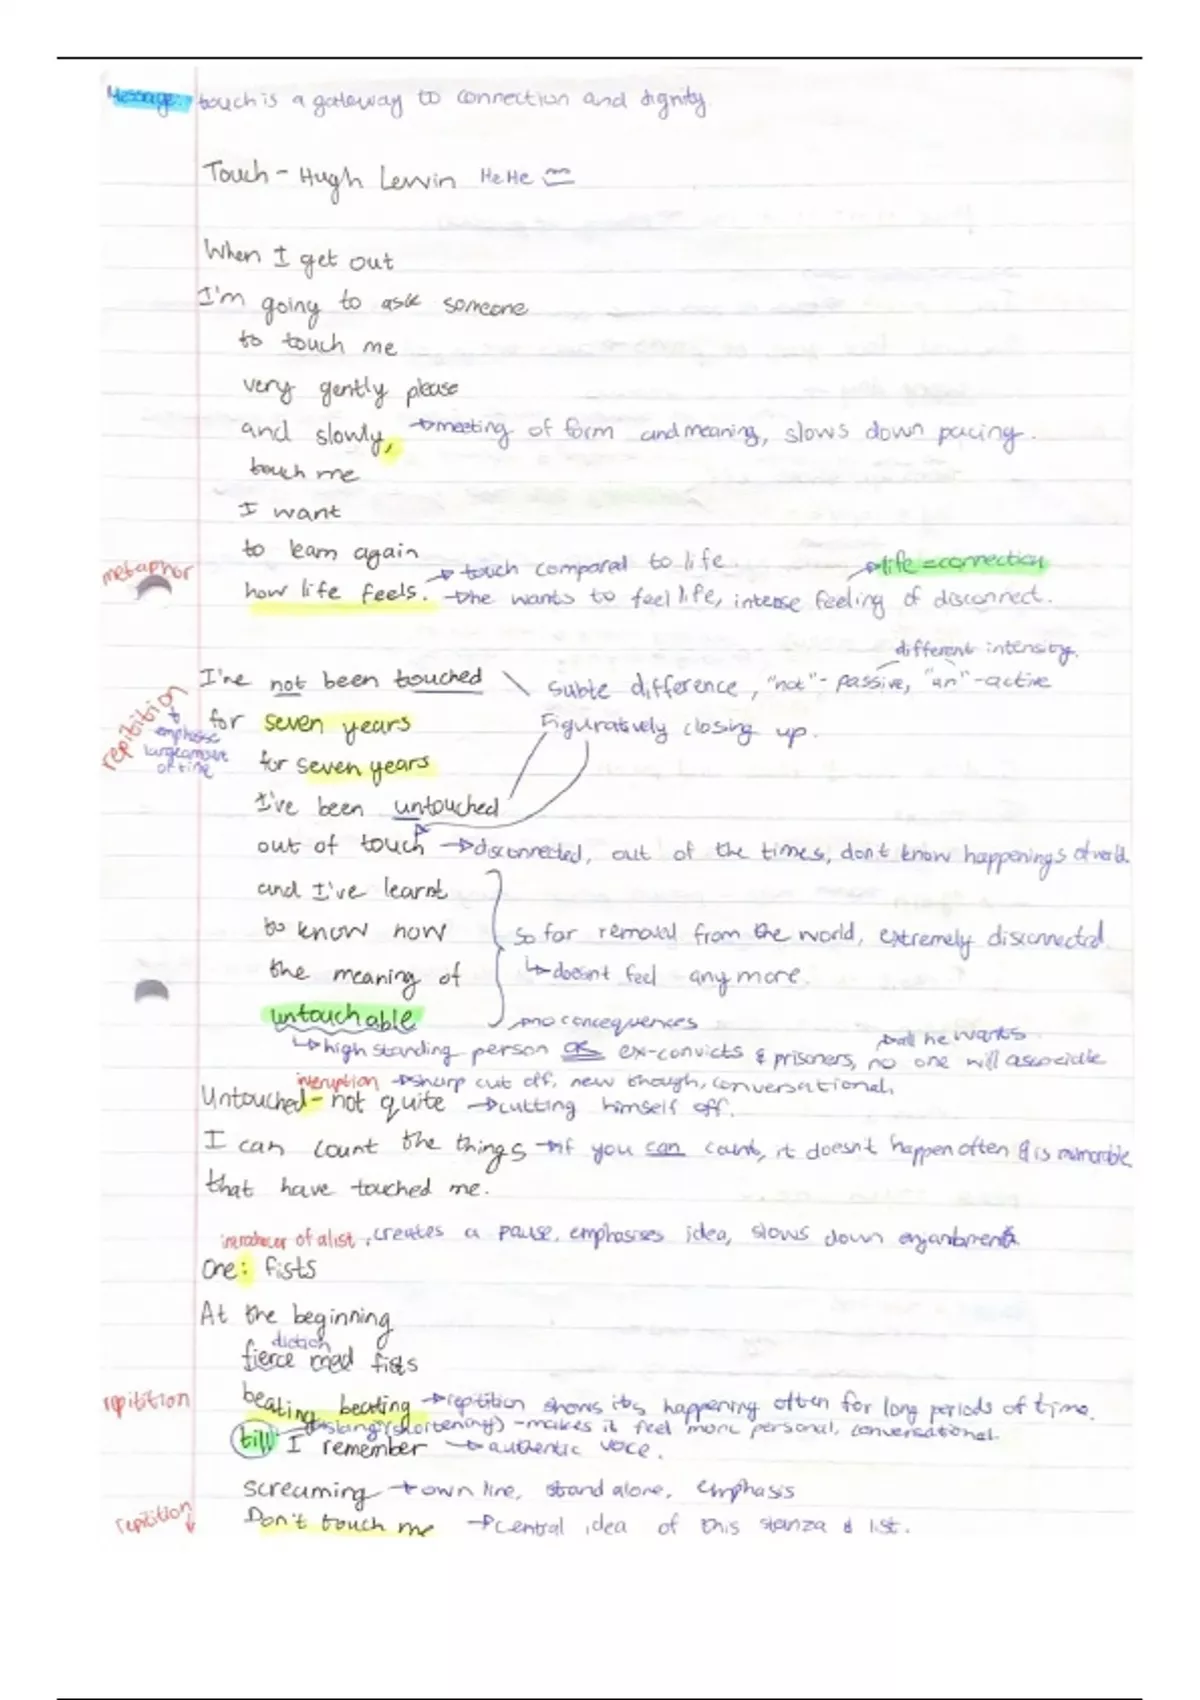 Message: touch is a gateway to connection and dignity.
Touch - Hugh Lewin HeHe
When I get out
I'm going to ask someone
to touch me
very gently please
and slowly, → meeting of form and meaning, slows down pacing.
touch me
I want
to learn again
metaphor
how life feels. → touch compared to life → life = connection
→ he wants to feel life, intense feeling of disconnect.
different intensity.
I've not been touched \ Subtle difference, "not" - passive, "un" - active
repitition
→ emphasise large amount of time
for seven years Figuratively closing up.
for seven years
I've been untouched
out of touch → disconnected, out of the times, don't know happenings of world.
and I've learnt
to know now so far removed from the world, extremely disconnected.
the meaning of ↳ doesnt feel any more.
untouchable → no concequences
↳ high standing person OR ex-convicts & prisoners, no one will associate → all he wants
interuption → sharp cut off, new though, conversational.
Untouched - not quite → cutting himself off.
I can count the things → if you can count, it doesnt happen often & is memorable
that have touched me.
introducer of a list, creates a pause, emphasises idea, slows down
One: fists
At the beginning
diction
fierce mad fists
repitition
beating beating → reptition shows its happening often for long periods of time.
→ slang (shortening) - makes it feel more personal, conversational.
till I remember → authentic voice.
screaming → own line, stand alone, emphasis
repitition
Don't touch me → central idea of this stanza & list.